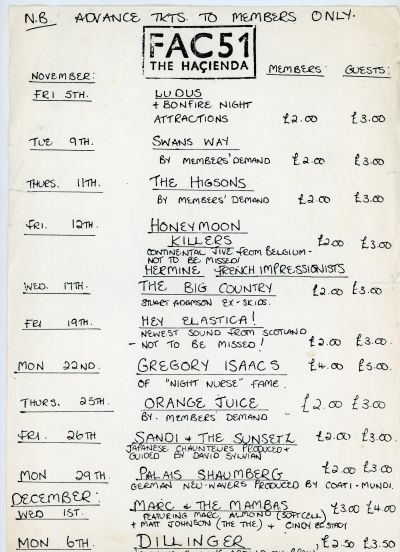 N.B. ADVANCE TKTS TO MEMBERS ONLY.
FAC51
THE HAÇIENDA
NOVEMBER: MEMBERS: GUESTS:
FRI 5TH. LUDUS
+ BONFIRE NIGHT
ATTRACTIONS £2.00 £3.00
TUE 9TH. SWANS WAY
BY MEMBERS' DEMAND £2.00 £3.00
THURS. 11TH. THE HIGSONS
BY MEMBERS' DEMAND £2.00 £3.00
FRI. 12TH. HONEYMOON
KILLERS £2.00 £3.00
CONTINENTAL JIVE FROM BELGIUM -
NOT TO BE MISSED!
HERMINE FRENCH IMPRESSIONISTS
WED. 17TH. THE BIG COUNTRY £2.00 £3.00
STUART ADAMSON EX-SKIDS.
FRI 19TH. HEY ELASTICA!
NEWEST SOUND FROM SCOTLAND
- NOT TO BE MISSED! £2.00 £3.00
MON 22ND. GREGORY ISAACS £4.00 £5.00
OF "NIGHT NURSE" FAME.
THURS. 25TH. ORANGE JUICE £2.00 £3.00
BY MEMBERS' DEMAND
FRI. 26TH SANDI & THE SUNSETZ £2.00 £3.00
JAPANESE CHAUNTEURS PRODUCED +
GUIDED BY DAVID SYLVIAN
MON 29TH. PALAIS SHAUMBERG £2.00 £3.00
GERMAN NEU-WAVERS PRODUCED BY COATI-MUNDI.
DECEMBER:
WED 1ST. MARC & THE MAMBAS £3.00 £4.00
FEATURING MARC ALMOND (SOFT CELL)
+ MATT JOHNSON (THE THE) + CINDY ECSTASY
MON 6TH. DILLINGER £2.50 £3.50